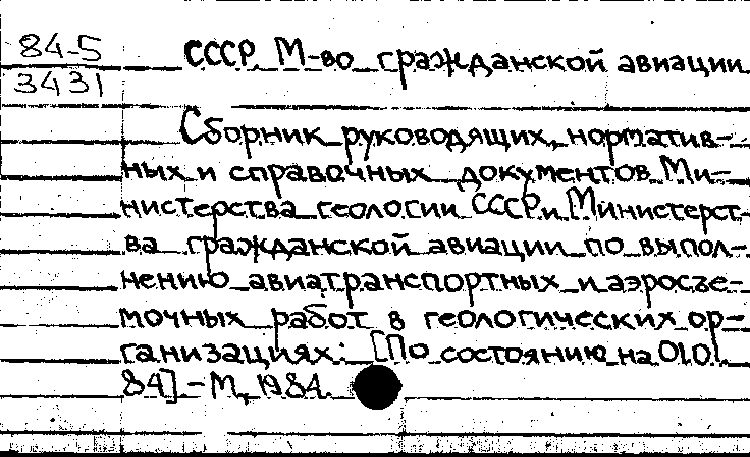 84-5
3431
СССР. М-во гражданской авиации
Сборник руководящих, норматив-
ных и справочных документов Ми-
нистерства геологии СССР и Министерст-
ва гражданской авиации по выпол-
нению авиатранспортных и аэросъе-
мочных работ в геологических ор-
ганизациях: [По состоянию на 01.01.
84]. - М., 1984.